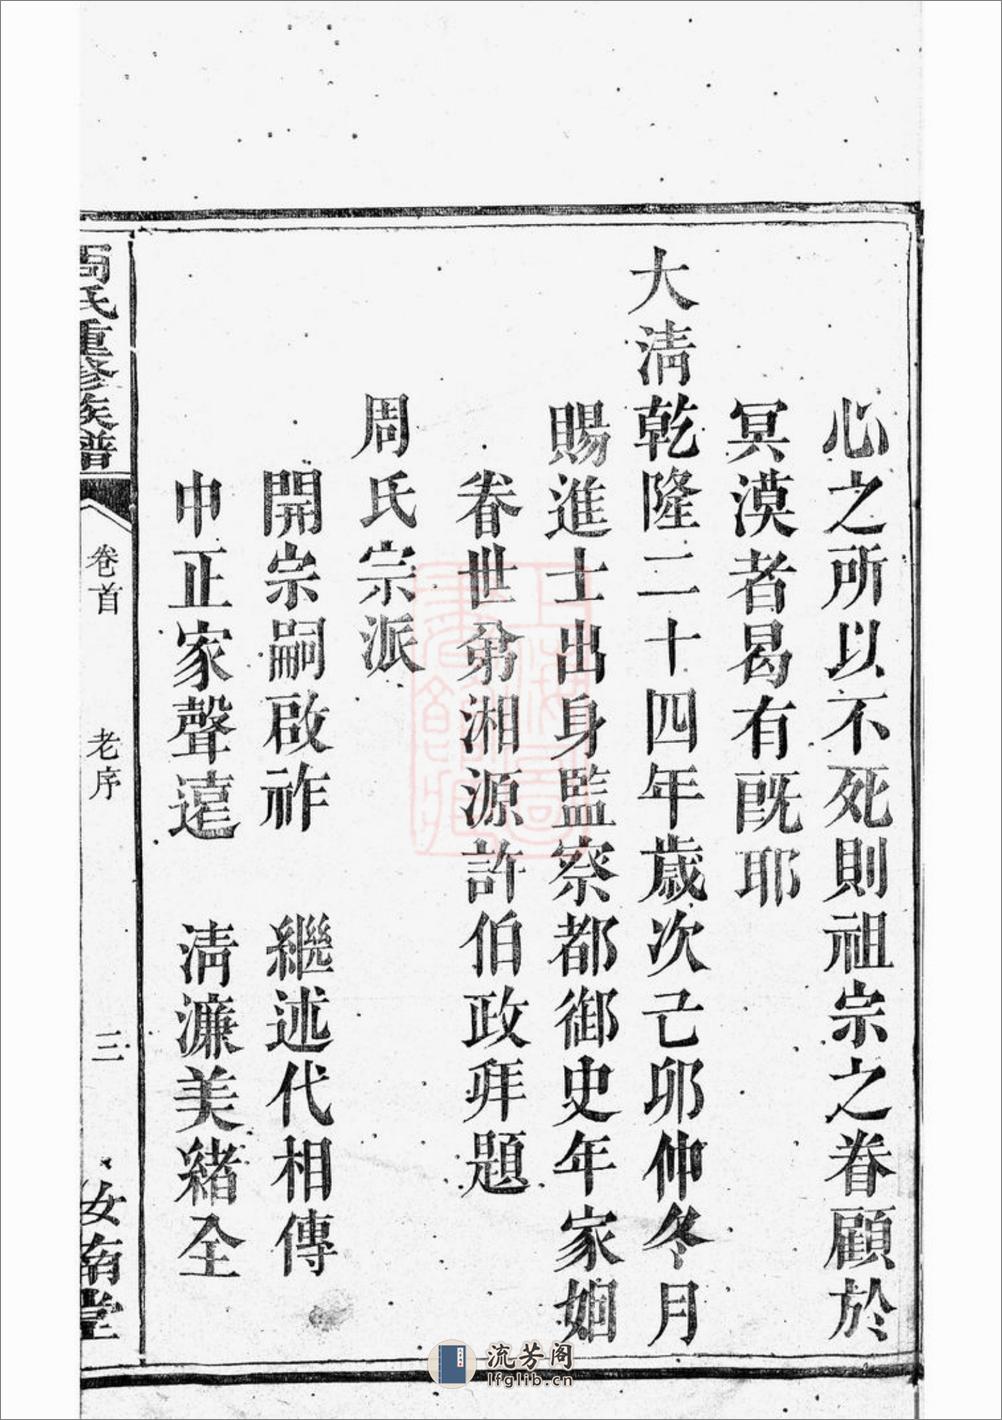 心之所以不死則祖宗之眷顧於
冥漠者曷有旣耶
大淸乾隆二十四年歲次己卯仲冬月
賜進士出身監察都御史年家姻
眷世弟湘源許伯政拜題
周氏宗派
開宗嗣啟祚 繼述代相傳
中正家聲遠 淸濂美緒全
周氏重修族譜
卷首
老序
三
汝南堂
流芳阁
lfglib.cn